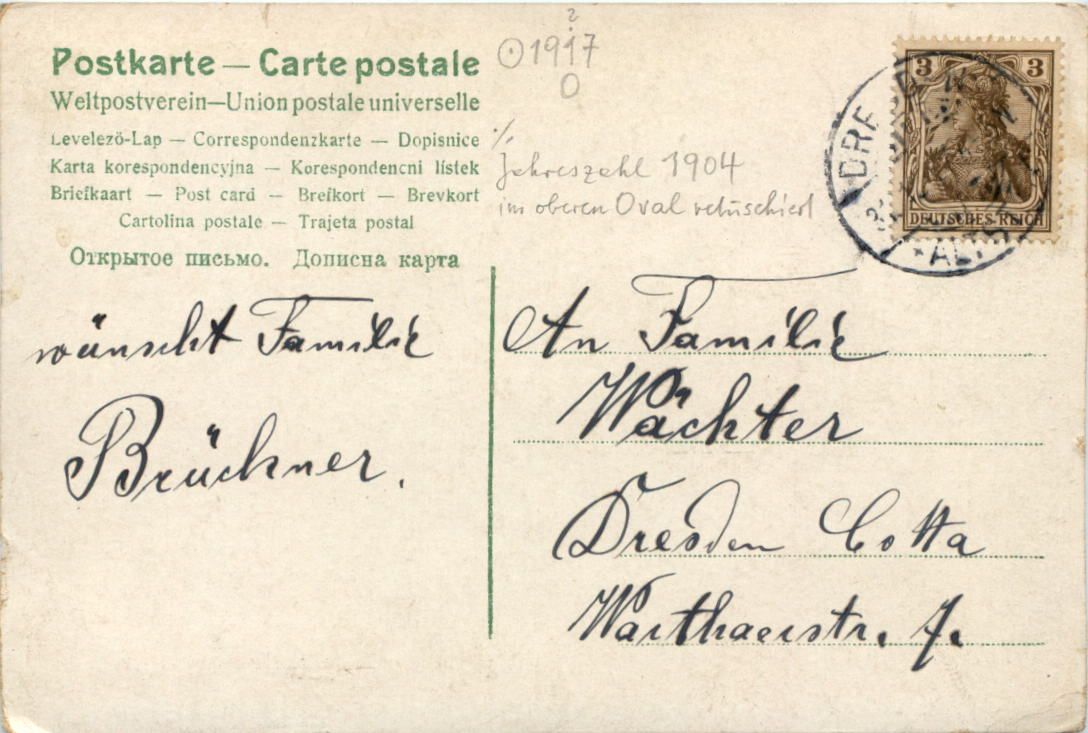 Postkarte — Carte postale
Weltpostverein—Union postale universelle
Levelező-Lap — Correspondenzkarte — Dopisnice
Karta korespondencyjna — Korespondencni listek
Briefkaart — Post card — Brefkort — Brevkort
Cartolina postale — Trajeta postal
Открытое письмо. Дописна карта
?
1917
O
·/.
Jahreszahl 1904
im oberen Oval retuschiert
3 3
DEUTSCHES REICH
DRESDEN
ALTST
wünscht Familie
Brückner.
An Familie
Wächter
Dresden Cotta
Warthaerstr. 7.